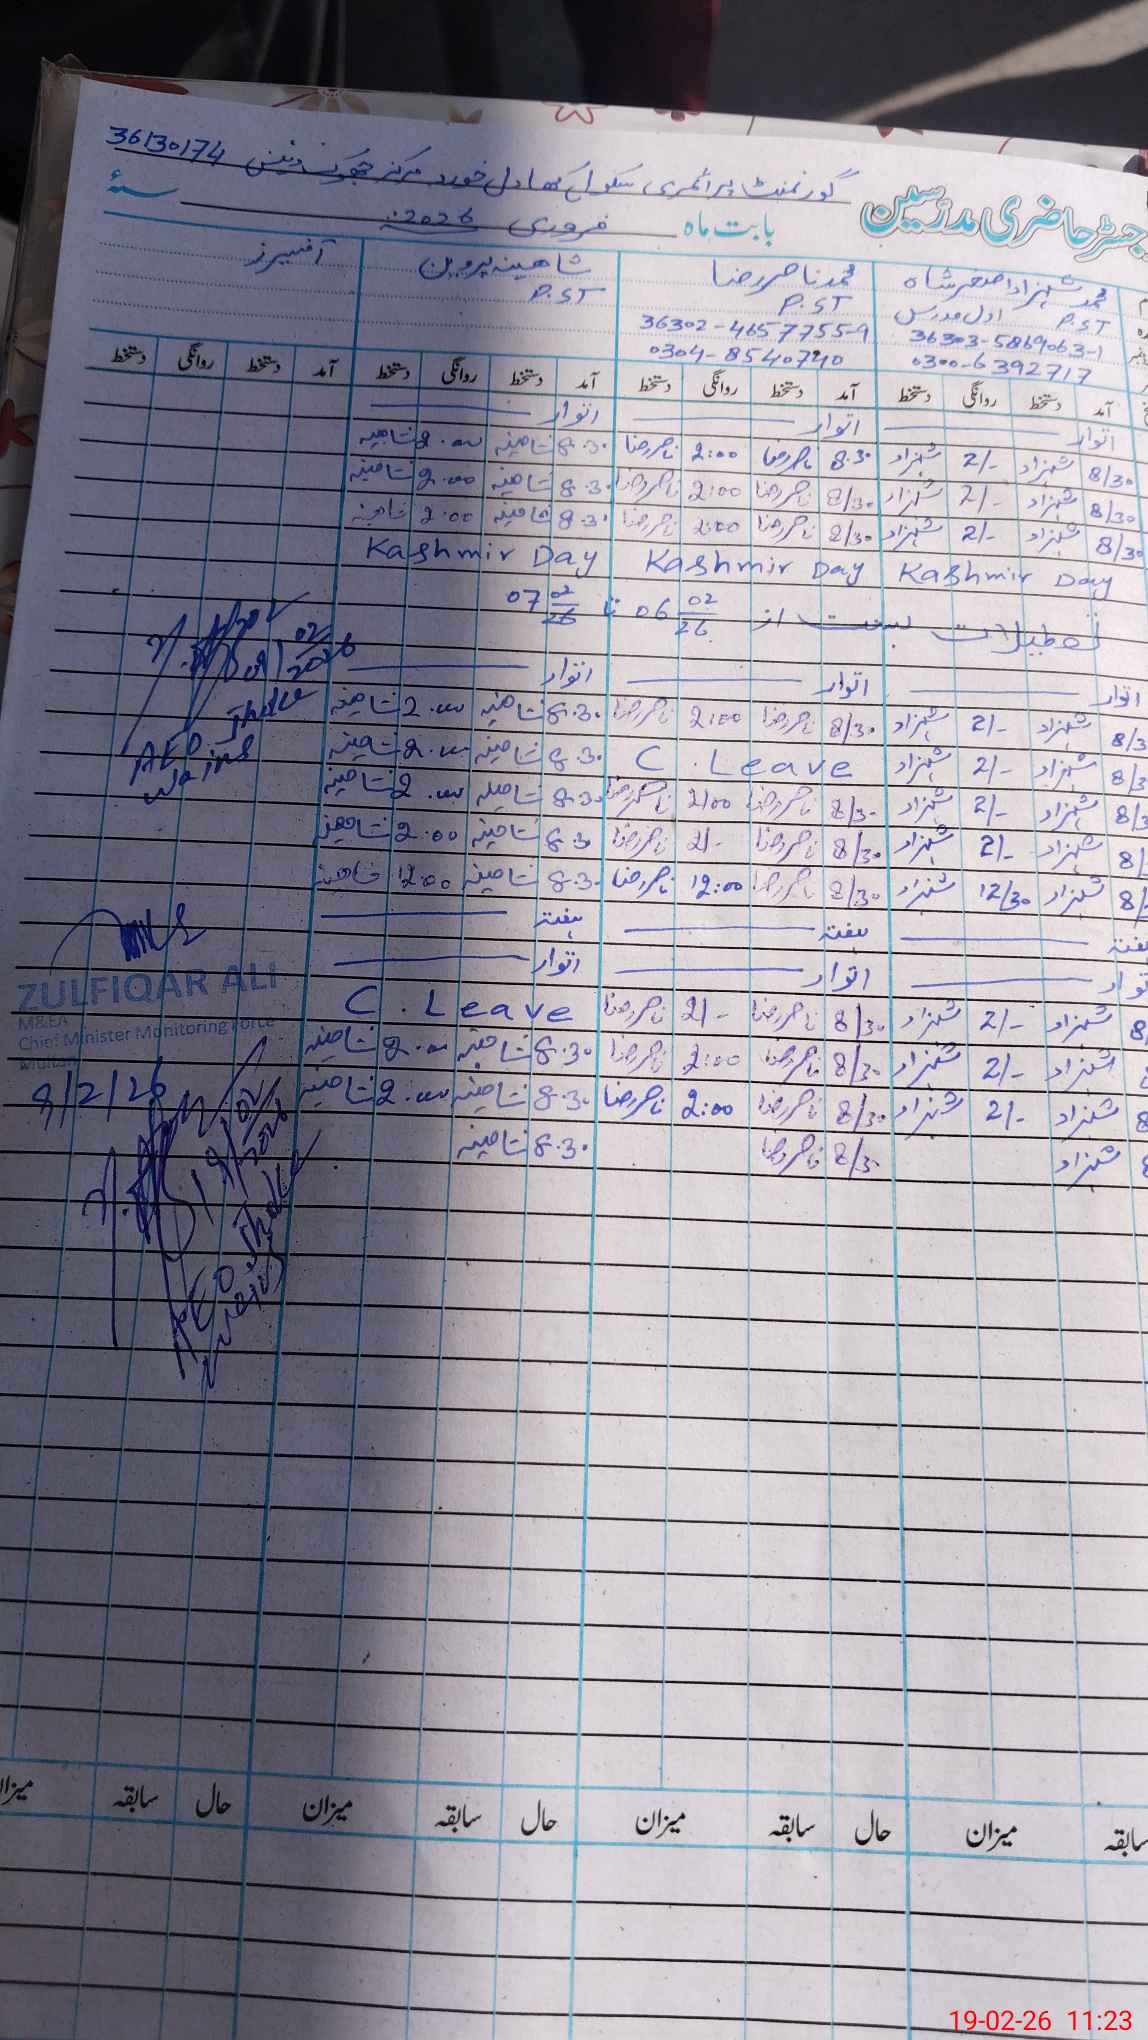 36130174 گورنمنٹ پرائمری سکول کھادل خورد مرکز جھوک وینس
رجسٹر حاضری مدرسین
بابت ماہ فروری 2026ء سنہ
محمد شہزاد اصغر شاہ محمد ناصر رضا شاہینہ پروین آفیسرز
P.ST اول مدرس P.ST P.ST
36303-5869063-1 36302-4657755-9
0300-6392717 0304-8540740
آمد دستخط روانگی دستخط آمد دستخط روانگی دستخط آمد دستخط روانگی دستخط آمد دستخط روانگی دستخط
اتوار اتوار اتوار
8/30 شہزاد 2/- شہزاد 8.30 ناصر رضا 2:00 ناصر رضا 8.30 شاہینہ 2.00 شاہینہ
8/30 شہزاد 2/- شہزاد 8/30 ناصر رضا 2:00 ناصر رضا 8.30 شاہینہ 2.00 شاہینہ
8/30 شہزاد 2/- شہزاد 8/30 ناصر رضا 2:00 ناصر رضا 8.30 شاہینہ 2:00 شاہینہ
Kashmir Day Kashmir Day Kashmir Day
تعطیلات بسنت از 06 02/26 تا 07 02/26
اتوار اتوار اتوار
8/3 شہزاد 2/- شہزاد 8/30 ناصر رضا 2:00 ناصر رضا 8.30 شاہینہ 2.00 شاہینہ
8/3 شہزاد 2/- شہزاد C. Leave 8.30 شاہینہ 2.00 شاہینہ
8/3 شہزاد 2/- شہزاد 8/30 ناصر رضا 2/00 ناصر رضا 8.30 شاہینہ 2.00 شاہینہ
8/ شہزاد 2/- شہزاد 8/30 ناصر رضا 2/- ناصر رضا 8.30 شاہینہ 2:00 شاہینہ
8/ شہزاد 12/30 شہزاد 8/30 ناصر رضا 12:00 ناصر رضا 8.30 شاہینہ 12:00 شاہینہ
ہفتہ ہفتہ ہفتہ
اتوار اتوار اتوار
8/ شہزاد 2/- شہزاد 8/30 ناصر رضا 2/- ناصر رضا C. Leave
شہزاد 2/- شہزاد 8/30 ناصر رضا 2:00 ناصر رضا 8.30 شاہینہ 2.00 شاہینہ
8 شہزاد 2/- شہزاد 8/30 ناصر رضا 2:00 ناصر رضا 8.30 شاہینہ 2.00 شاہینہ
شہزاد 8/30 ناصر رضا 8.30 شاہینہ
09/02/2026
AEO Jhoke Wains
ZULFIQAR ALI
M&EA
Chief Minister Monitoring Force
Multan
9/2/26
19/02/2026
AEO Jhoke Wains
سابقہ میزان حال سابقہ میزان حال سابقہ میزان حال سابقہ میزان
19-02-26 11:23